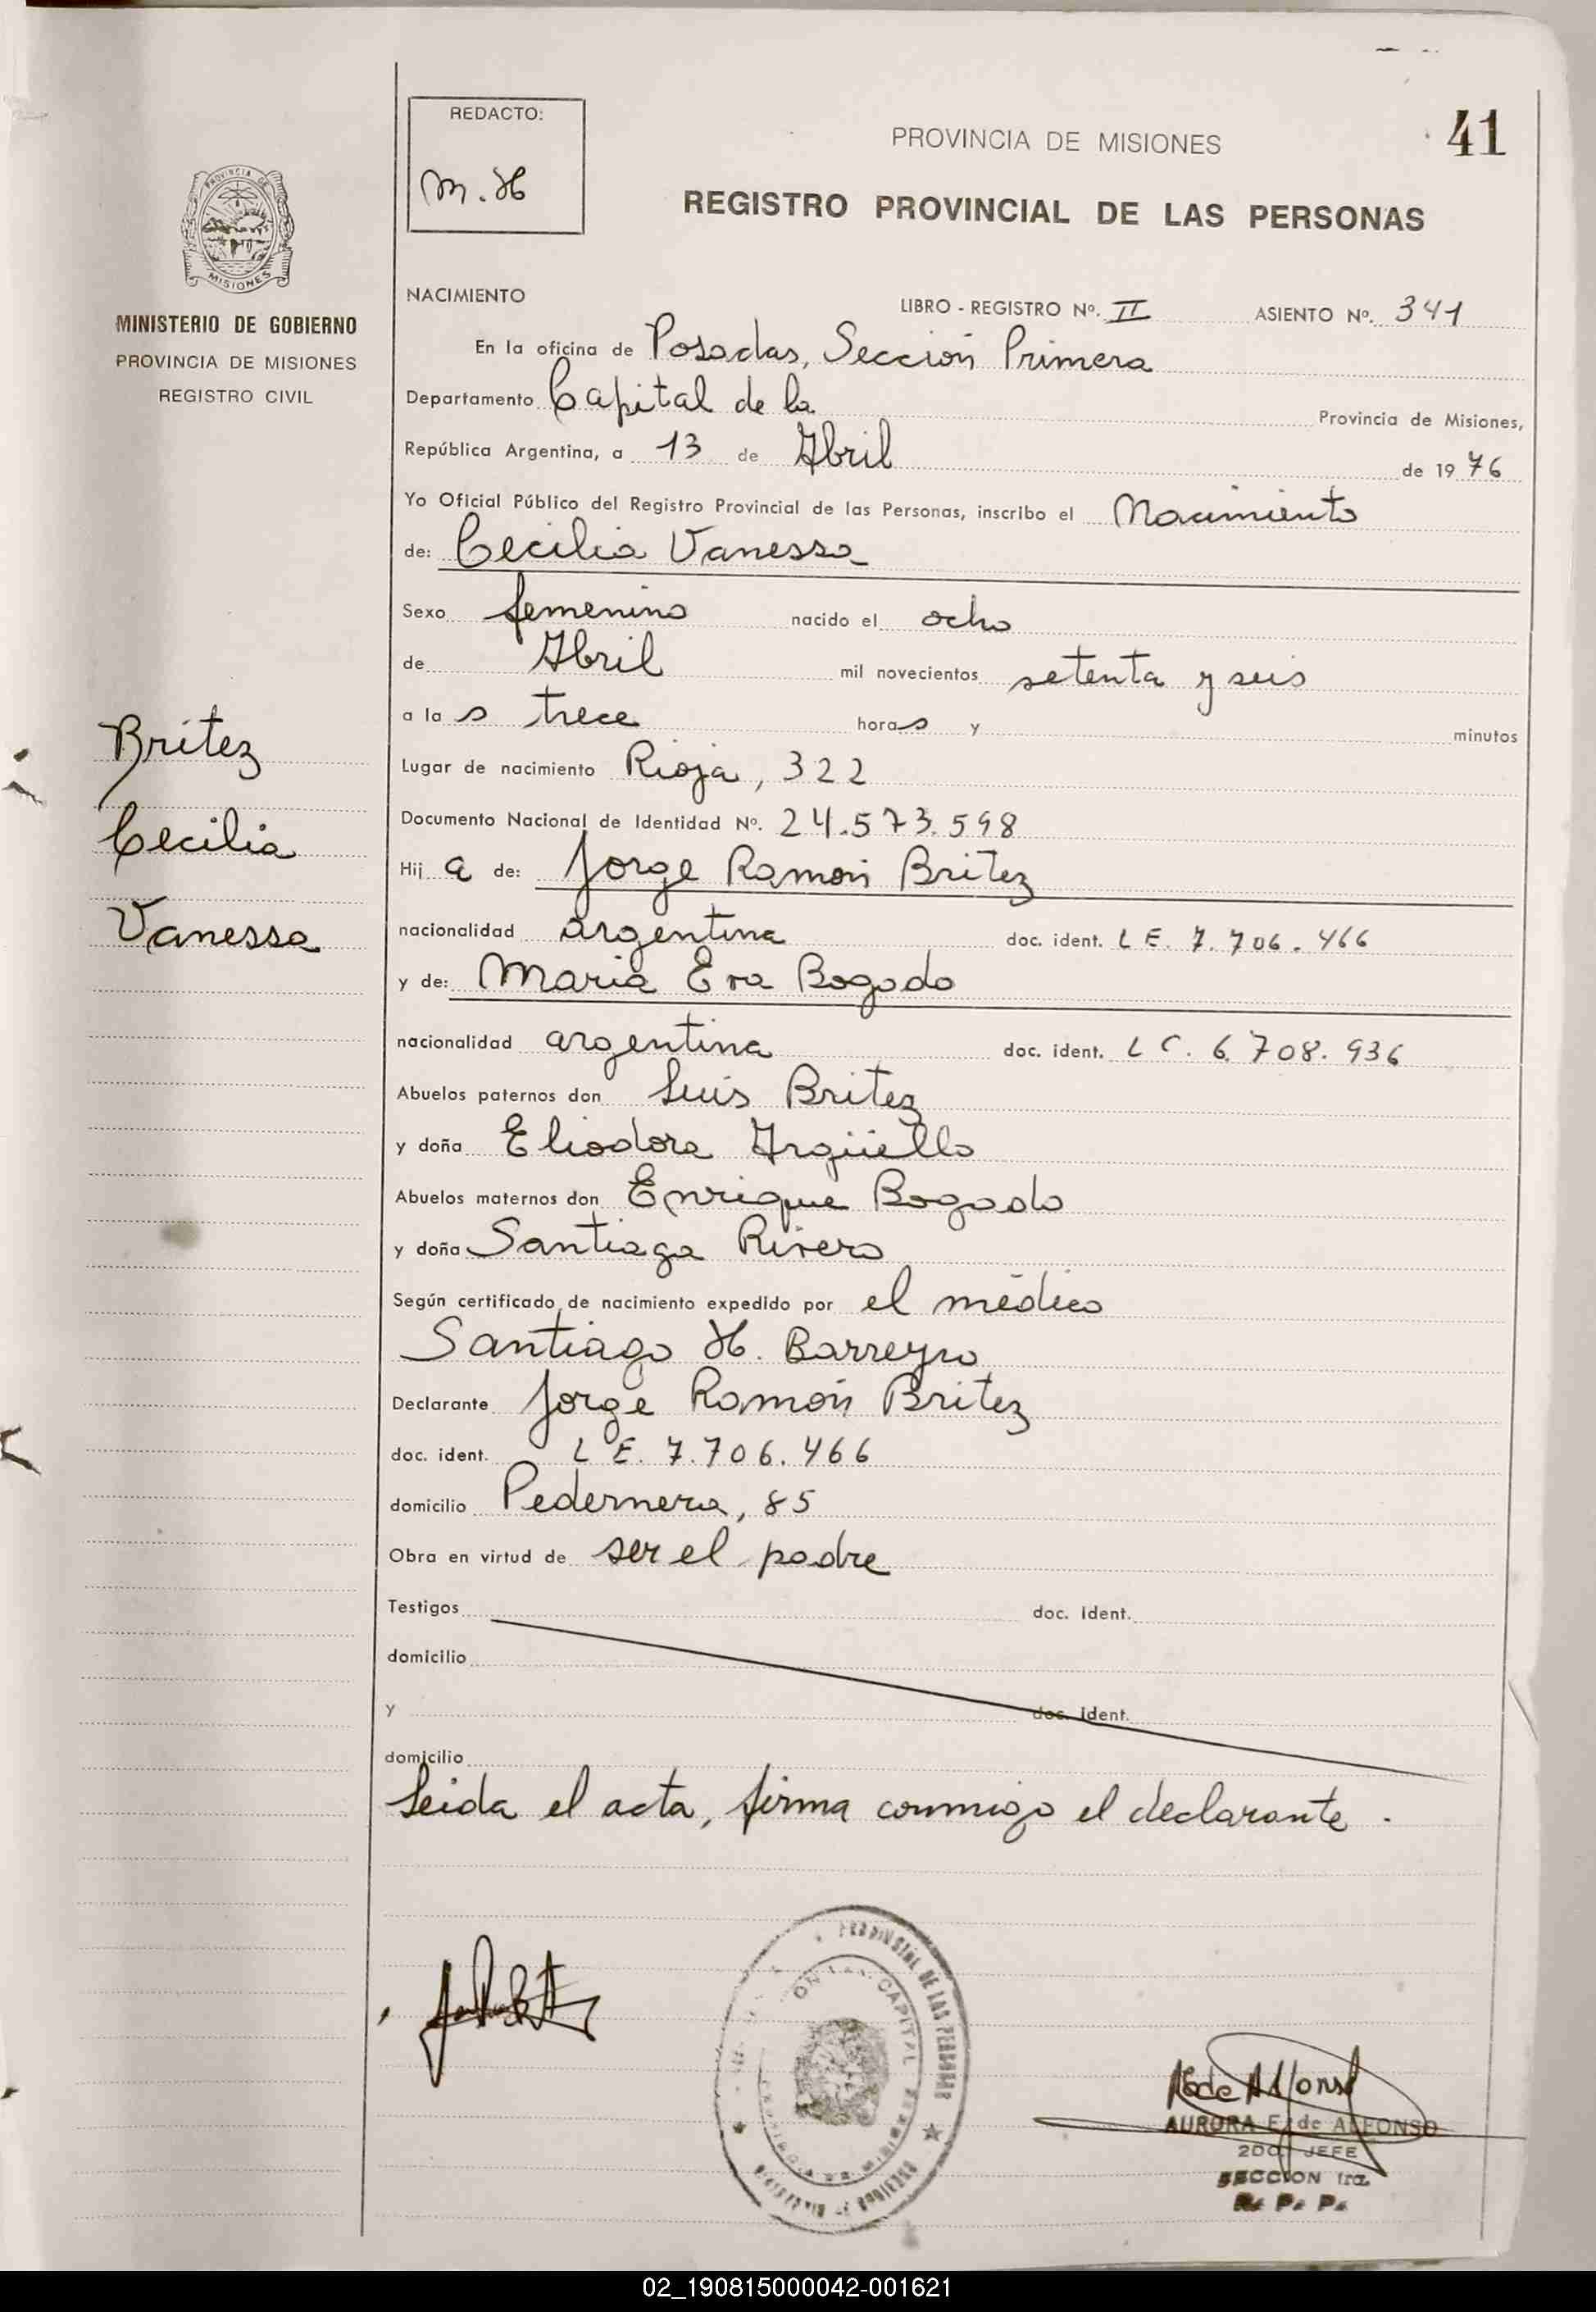 REDACTO:
M. H
PROVINCIA DE MISIONES
41
REGISTRO PROVINCIAL DE LAS PERSONAS
MISIONES
MINISTERIO DE GOBIERNO
PROVINCIA DE MISIONES
REGISTRO CIVIL
Britez
Cecilia
Vanessa
NACIMIENTO LIBRO - REGISTRO Nº. II ASIENTO Nº. 341
En la oficina de Posadas, Sección Primera
Departamento Capital de la Provincia de Misiones,
República Argentina, a 13 de Abril de 1976
Yo Oficial Público del Registro Provincial de las Personas, inscribo el Nacimiento
de: Cecilia Vanessa
Sexo femenino nacido el ocho
de Abril mil novecientos setenta y seis
a las trece horas y minutos
Lugar de nacimiento Rioja, 322
Documento Nacional de Identidad Nº. 24.573.598
Hija de: Jorge Ramón Britez
nacionalidad argentina doc. ident. L E. 7.706.466
y de: Maria Eva Bogado
nacionalidad argentina doc. ident. L C. 6.708.936
Abuelos paternos don Luis Britez
y doña Eliodora Argüello
Abuelos maternos don Enrique Bogado
y doña Santiaga Rivero
Según certificado de nacimiento expedido por el médico
Santiago H. Barreyro
Declarante Jorge Ramón Britez
doc. ident. L E. 7.706.466
domicilio Pedernera, 85
Obra en virtud de ser el padre
Testigos doc. ident.
domicilio
y doc. ident.
domicilio
Leida el acta, firma conmigo el declarante.
PROVINCIAL DE LAS PERSONAS
CAPITAL
AURORA E. de ALFONSO
2DO JEFE
SECCION 1ra.
R. P. P.
02_190815000042-001621